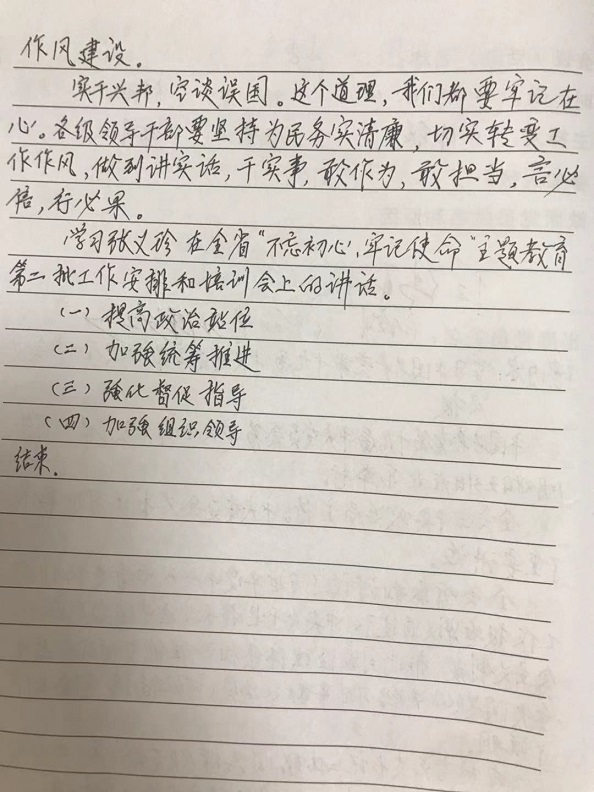 作风建设。
实干兴邦，空谈误国。这个道理，我们都要牢记在
心。各级领导干部要坚持为民务实清廉，切实转变工
作作风，做到讲实话，干实事，敢作为，敢担当，言必
信，行必果。
学习张义珍在全省“不忘初心、牢记使命”主题教育
第二批工作安排和培训会上的讲话。
（一）提高政治站位
（二）加强统筹推进
（三）强化督促指导
（四）加强组织领导
结束。